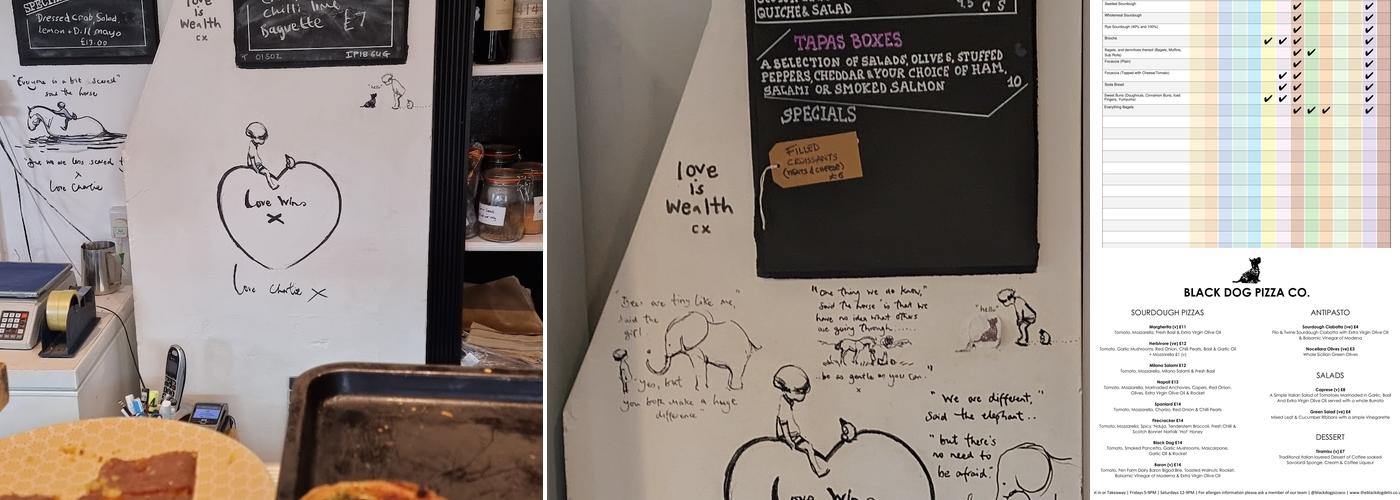 SPECIALS
Dressed Crab Salad
Lemon + Dill mayo
£13.00
"Everyone is a bit scared"
said the horse
x
Love Charlie
love
is
wealth
cx
Chilli Lime
Baguette £7
01502
IP18 6UG
"hello"
Love Wins
x
Love Charlie x
QUICHE & SALAD
9.5
TAPAS BOXES
A SELECTION OF SALADS, OLIVES, STUFFED
PEPPERS, CHEDDAR & YOUR CHOICE OF HAM,
SALAMI OR SMOKED SALMON
10
SPECIALS
FILLED
CROISSANTS
(MEATS & CHEESE)
love
is
wealth
cx
"Bees are tiny like me,"
said the
girl.
"yes, but
you both make a huge
difference"
"One thing we do know,"
said the horse "is that we
have no idea what others
are going through.....
be so gentle as you can."
x
"hello"
"We are different,"
said the elephant..
"but there's
no need to
be afraid."
Love Wins
Seeded Sourdough
Wholemeal Sourdough
Rye Sourdough (40% and 100%)
Brioche
Bagels, and derivitives thereof (Bagels, Muffins,
Sub Rolls)
Focaccia (Plain)
Focaccia (Topped with Cheese/Tomato)
Soda Bread
Sweet Buns (Doughnuts, Cinnamon Buns, Iced
Fingers, Yumyums)
Everything Bagels
BLACK DOG PIZZA CO.
SOURDOUGH PIZZAS
Margherita (v) £11
Tomato, Mozzarella, Fresh Basil & Extra Virgin Olive Oil
Herbivore (ve) £12
Tomato, Garlic Mushrooms, Red Onion, Chilli Pearls, Basil & Garlic Oil
+ Mozzarella £1 (v)
Milano Salami £12
Tomato, Mozzarella, Milano Salami & Fresh Basil
Napoli £13
Tomato, Mozzarella, Marinaded Anchovies, Capers, Red Onion,
Olives, Extra Virgin Olive Oil & Rocket
Spaniard £14
Tomato, Mozzarella, Chorizo, Red Onion & Chilli Pearls
Firecracker £14
Tomato, Mozzarella, Spicy 'Nduja, Tenderstem Broccoli, Fresh Chilli &
Scotch Bonnet Norfolk 'Hot' Honey
Black Dog £14
Tomato, Smoked Pancetta, Garlic Mushrooms, Mascarpone,
Garlic Oil & Rocket
Baron (v) £14
Tomato, Fen Farm Dairy Baron Bigod Brie, Toasted Walnuts, Rocket,
& Extra Virgin Olive Oil
ANTIPASTO
Sourdough Ciabatta (ve) £4
Filo & Twine Sourdough Ciabatta with Extra Virgin Olive Oil
& Balsamic Vinegar of Modena
Nocellara Olives (ve) £3
Whole Sicilian Green Olives
SALADS
Caprese (v) £8
A Simple Italian Salad of Tomatoes Marinaded in Garlic, Basil
And Extra Virgin Olive Oil served with a whole Burrata
Green Salad (ve) £4
Mixed Leaf & Cucumber Ribbons with a simple Vinegarette
DESSERT
Tiramisu (v) £7
Traditional Italian layered Dessert of Coffee soaked
Savoiardi Sponge, Cream & Coffee Liqueur
in or Takeaway | Fridays 5-9PM | Saturdays 12-9PM | For allergen information please ask a member of our team | @blackdogpizzaco